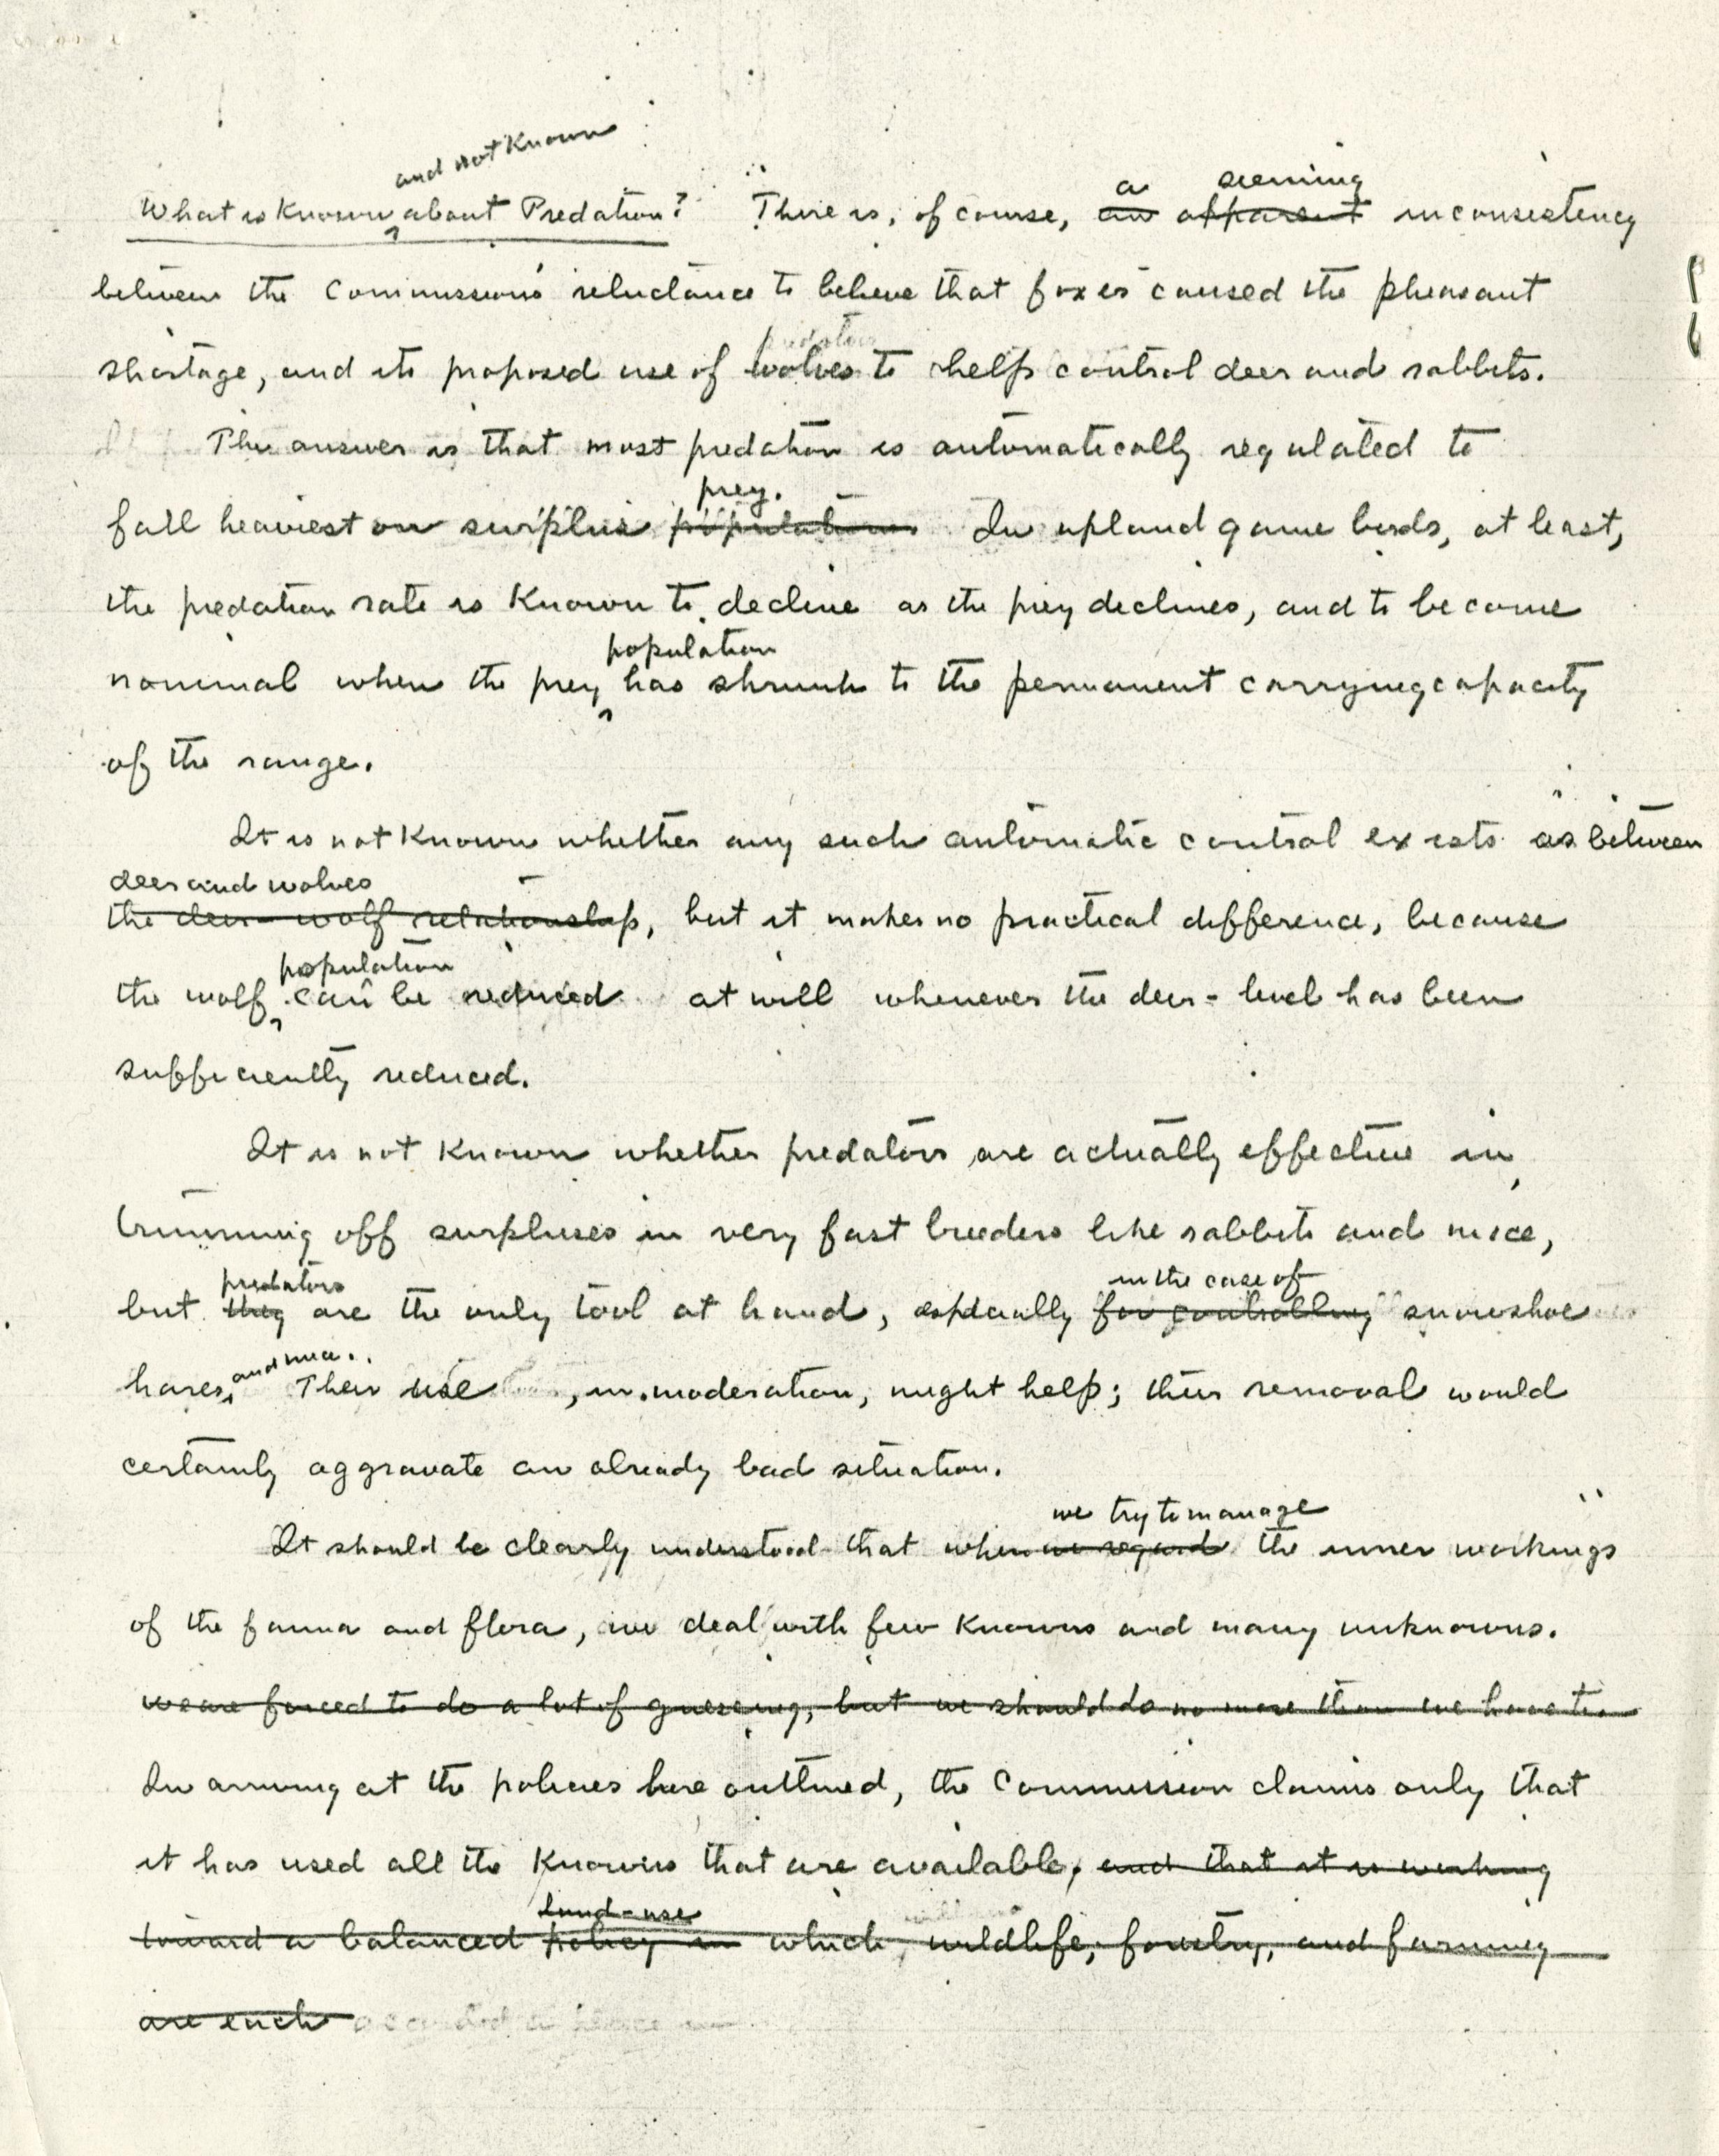 and not known
a seeming
What is Known about Predation? There is, of course, an apparent inconsistency
between the Commission's reluctance to believe that foxes caused the pheasant
predators
shortage, and its proposed use of wolves to help control deer and rabbits.
The answer is that most predation is automatically regulated to
prey.
fall heaviest on surplus populations In upland game birds, at least,
the predation rate is known to decline as the prey declines, and to become
population
nominal when the prey has shrunk to the permanent carrying capacity
of the range.
It is not known whether any such automatic control exists as between
deer and wolves
the deer-wolf relationship, but it makes no practical difference, because
population
the wolf can be reduced at will whenever the deer-level has been
sufficiently reduced.
It is not known whether predators are actually effective in
trimming off surpluses in very fast breeders like rabbits and mice,
predators in the case of
but they are the only tool at hand, especially for controlling snowshoe
and mice.
hares, Their use, in moderation, might help; their removal would
certainly aggravate an already bad situation.
we try to manage
It should be clearly understood that when we regard the inner workings
of the fauna and flora, we deal with few knowns and many unknowns.
we are forced to do a lot of guessing, but we should do no more than we have to.
In arriving at the policies here outlined, the Commission claims only that
it has used all the knowns that are available, and that it is working
land-use
toward a balanced policy in which wildlife, forestry, and farming
are each